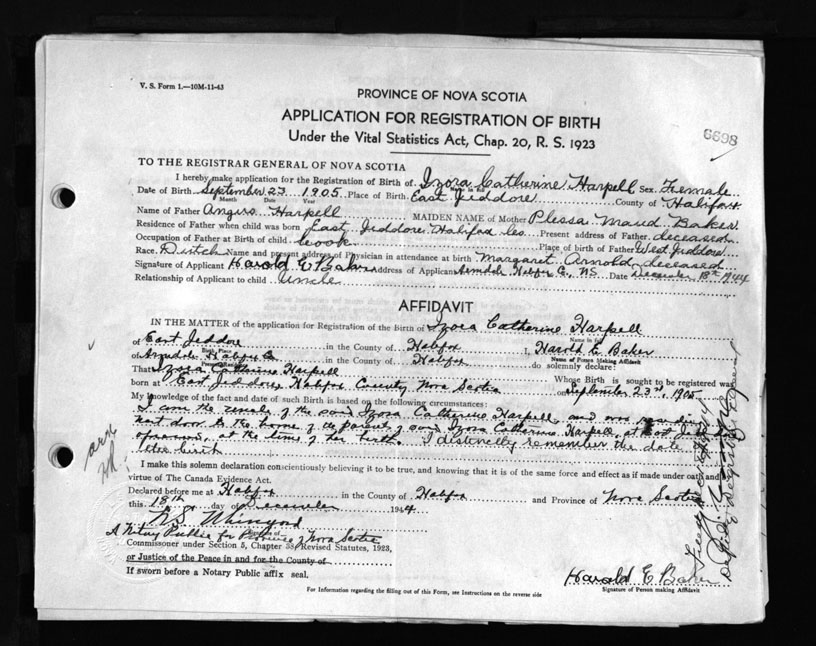 V. S. Form 1.—10M-11-43
PROVINCE OF NOVA SCOTIA
APPLICATION FOR REGISTRATION OF BIRTH
Under the Vital Statistics Act, Chap. 20, R. S. 1923
6698
TO THE REGISTRAR GENERAL OF NOVA SCOTIA
I hereby make application for the Registration of Birth of Izora Catherine Harpell Sex Female
Name in full
Date of Birth September 23 1905 Place of Birth East Jeddore County of Halifax
Month Date Year
Name of Father Angus Harpell MAIDEN NAME of Mother Plessa Maud Baker
Residence of Father when child was born East Jeddore Halifax Co. Present address of Father deceased
Occupation of Father at Birth of child Cook Place of birth of Father West Jeddore
Race Dutch Name and present address of Physician in attendance at birth Margaret Arnold, deceased
Signature of Applicant Harold E Baker Address of Applicant Armdale Halifax Co, NS Date December 18th 1944
Relationship of Applicant to child Uncle
AFFIDAVIT
IN THE MATTER of the application for Registration of the Birth of Izora Catherine Harpell
Name in full
of East Jeddore in the County of Halifax I, Harold E Baker
Name of Person Making Affidavit
of Armdale Halifax Co. in the County of Halifax do solemnly declare:
That Izora Catherine Harpell Whose Birth is sought to be registered was
born at East Jeddore, Halifax County, Nova Scotia on September 23rd, 1905
My knowledge of the fact and date of such Birth is based on the following circumstances:
I am the uncle of the said Izora Catherine Harpell, and was residing
next door to the home of the parents of said Izora Catherine Harpell, at East Jeddore
aforesaid, at the time of her birth. I distinctly remember the date
of her birth
I make this solemn declaration conscientiously believing it to be true, and knowing that it is of the same force and effect as if made under oath and by
virtue of The Canada Evidence Act.
Declared before me at Halifax in the County of Halifax and Province of Nova Scotia
this 18th day of December 1944
A Notary Public for Province of Nova Scotia
Commissioner under Section 5, Chapter 38, Revised Statutes, 1923,
or Justice of the Peace in and for the County of
If sworn before a Notary Public affix seal.
Harold E Baker
Signature of Person making Affidavit
For Information regarding the filling out of this Form, see Instructions on the reverse side